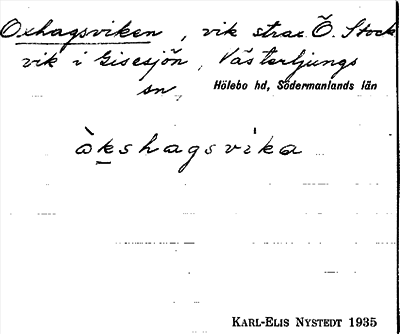 Oxhagsviken, vik strax Ö. Stock
vik i Gisesjön, Västerljungs
sn, Hölebo hd, Södermanlands län
òkshagsvika
KARL-ELIS NYSTEDT 1935